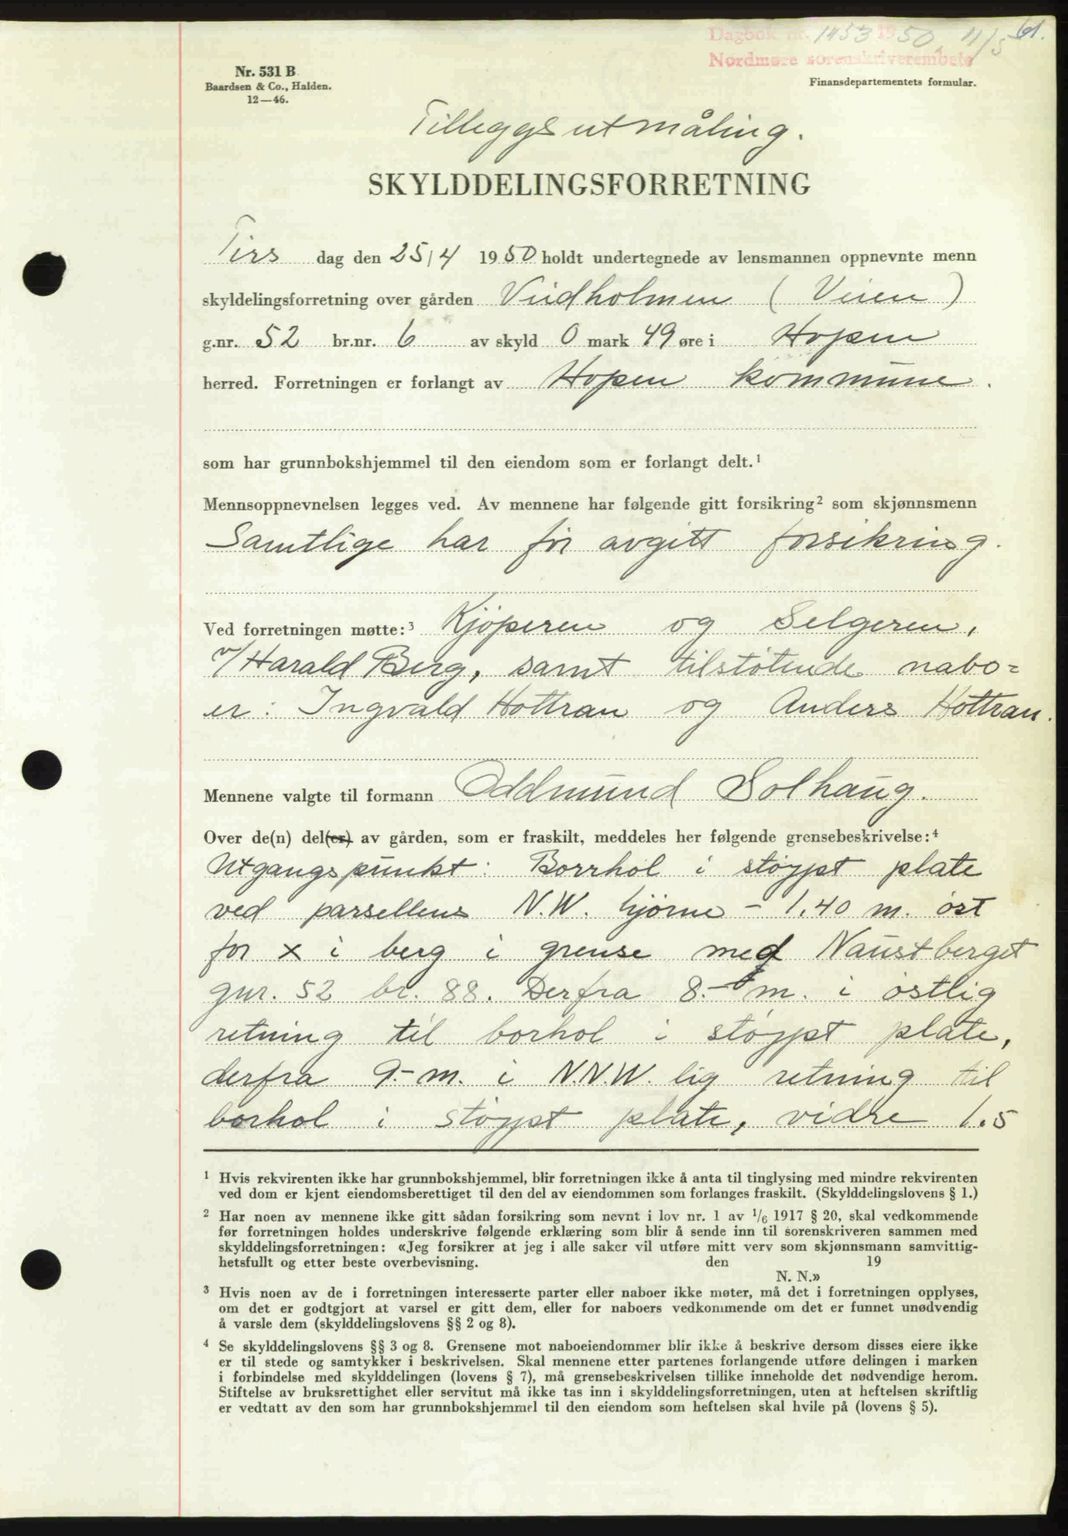 Dagbok nr. 1453 1950, 11/5 61.
Nordmøre sorenskriverembete
Nr. 531 B
Baardsen & Co., Halden.
12—46.
Finansdepartementets formular.
Tilleggsutmåling.
SKYLDDELINGSFORRETNING
Tirs dag den 25/4 1950 holdt undertegnede av lensmannen oppnevnte menn
skyldelingsforretning over gården Veidholmen (Veien)
g.nr. 52 br.nr. 6 av skyld 0 mark 49 øre i Hopen
herred. Forretningen er forlangt av Hopen kommune.
som har grunnbokshjemmel til den eiendom som er forlangt delt.¹
Mennsoppnevnelsen legges ved. Av mennene har følgende gitt forsikring² som skjønnsmenn
Samtlige har før avgitt forsikring.
Ved forretningen møtte:³ Kjøperen og Selgeren,
v/Harald Berg, samt tilstøtende nabo=
er: Ingvald Hottran og Anders Hottran.
Mennene valgte til formann Oddmund Solhaug.
Over de(n) del(er) av gården, som er fraskilt, meddeles her følgende grensebeskrivelse:⁴
Utgangspunkt: Borrhol i støypt plate
ved parsellens N.W. hjørne – 1.40 m. øst
for x i berg i grense med Naustberget
gnr. 52 br. 88. Derfra 8.- m. i østlig
retning til borhol i støypt plate,
derfra 9.- m. i N.N.W. lig retning til
borhol i støypt plate, vidre 1.5
¹ Hvis rekvirenten ikke har grunnbokshjemmel, blir forretningen ikke å anta til tinglysing med mindre rekvirenten
ved dom er kjent eiendomsberettiget til den del av eiendommen som forlanges fraskilt. (Skylddelingslovens § 1.)
² Har noen av mennene ikke gitt sådan forsikring som nevnt i lov nr. 1 av 1/6 1917 § 20, skal vedkommende
før forretningen holdes underskrive følgende erklæring som blir å sende inn til sorenskriveren sammen med
skylddelingsforretningen: «Jeg forsikrer at jeg i alle saker vil utføre mitt verv som skjønnsmann samvittig-
hetsfullt og etter beste overbevisning. den 19
N. N.»
³ Hvis noen av de i forretningen interesserte parter eller naboer ikke møter, må det i forretningen opplyses,
om det er godtgjort at varsel er gitt dem, eller for naboers vedkommende om det er funnet unødvendig
å varsle dem (skylddelingslovens §§ 2 og 8).
⁴ Se skylddelingslovens §§ 3 og 8. Grensene mot naboeiendommer blir ikke å beskrive dersom disses eiere ikke
er til stede og samtykker i beskrivelsen. Skal mennene etter partenes forlangende utføre delingen i marken
i forbindelse med skylddelingen (lovens § 7), må grensebeskrivelsen tillike inneholde det nødvendige herom.
Stiftelse av bruksrettighet eller servitut må ikke tas inn i skylddelingsforretningen, uten at heftelsen skriftlig
er vedtatt av den som har grunnbokshjemmel til den eiendom som heftelsen skal hvile på (lovens § 5).